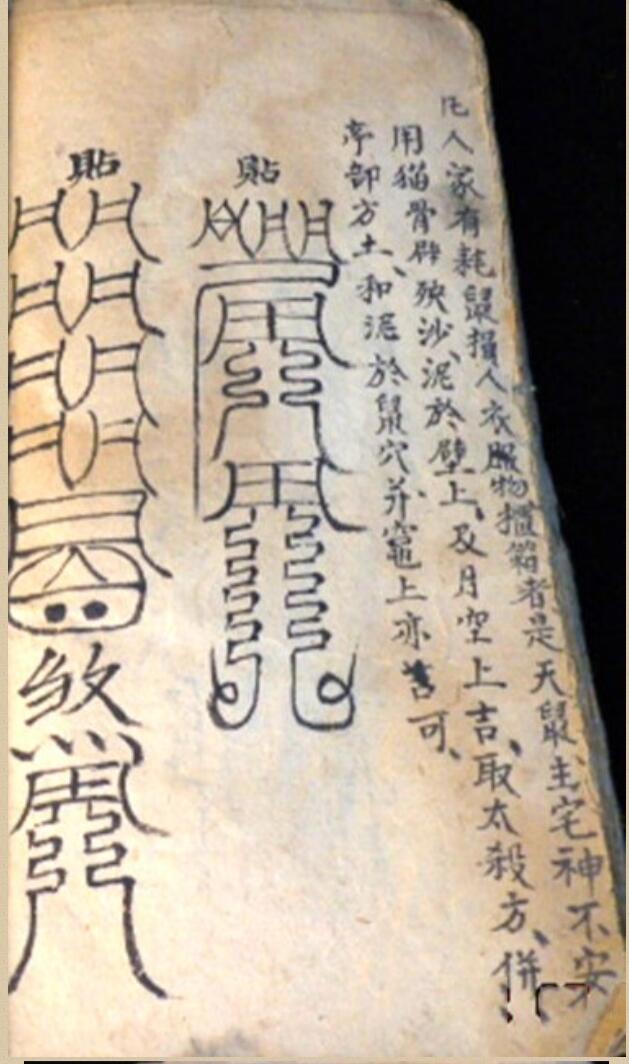 凡人家有耗鼠損人衣服物櫃箱者是天鼠、主宅神不安
用猫骨辟殃沙、泥於壁上、及月空上吉、取太殺方、併
亭部方土、和泥於鼠穴并竈上亦吉可、
貼
貼
煞